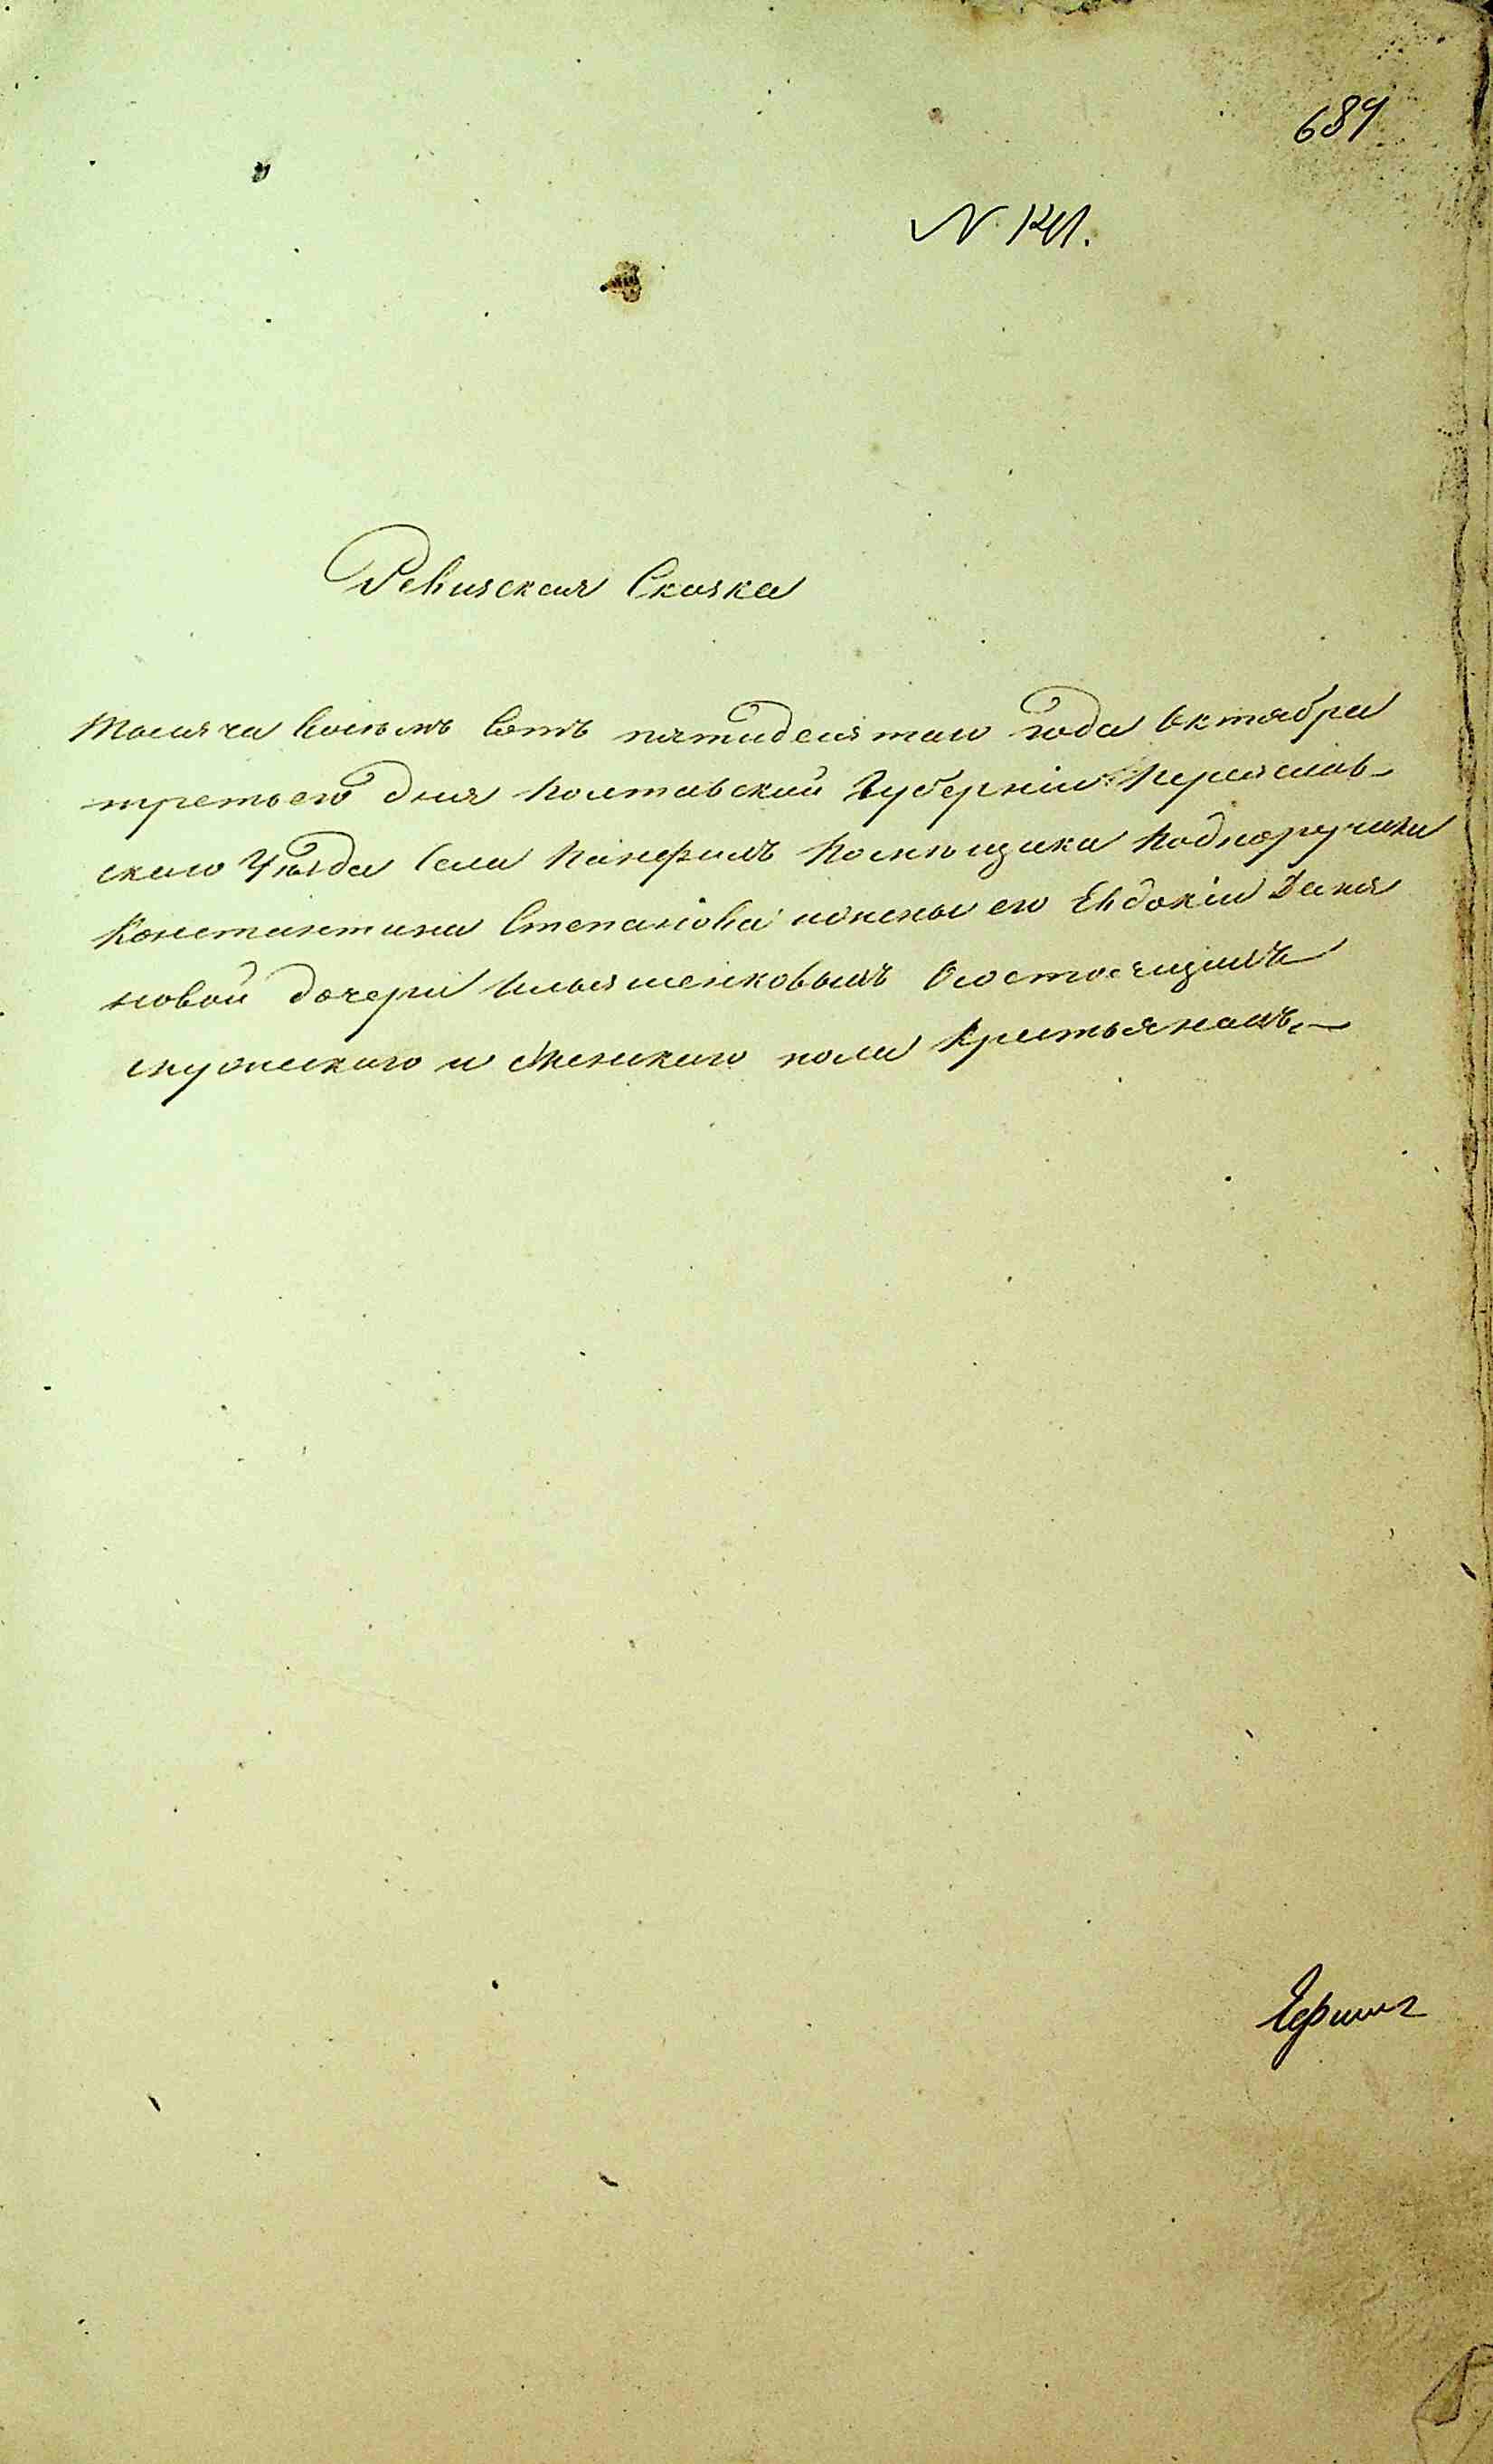 689
N. 1241.
Ревизская Сказка
Тысяча Восемъ Сотъ пятидесятаго года Октября
третьего дня Полтавской Губерніи Переяслав-
скаго Уѣзда Села Панфилъ Помѣщика Подпоручика
Константина Степанова ижены его Евдокіи Демя
новой дочери Ильяшенковымъ Осостоящихъ
мужескаго и Женскаго пола Крестьянахъ.